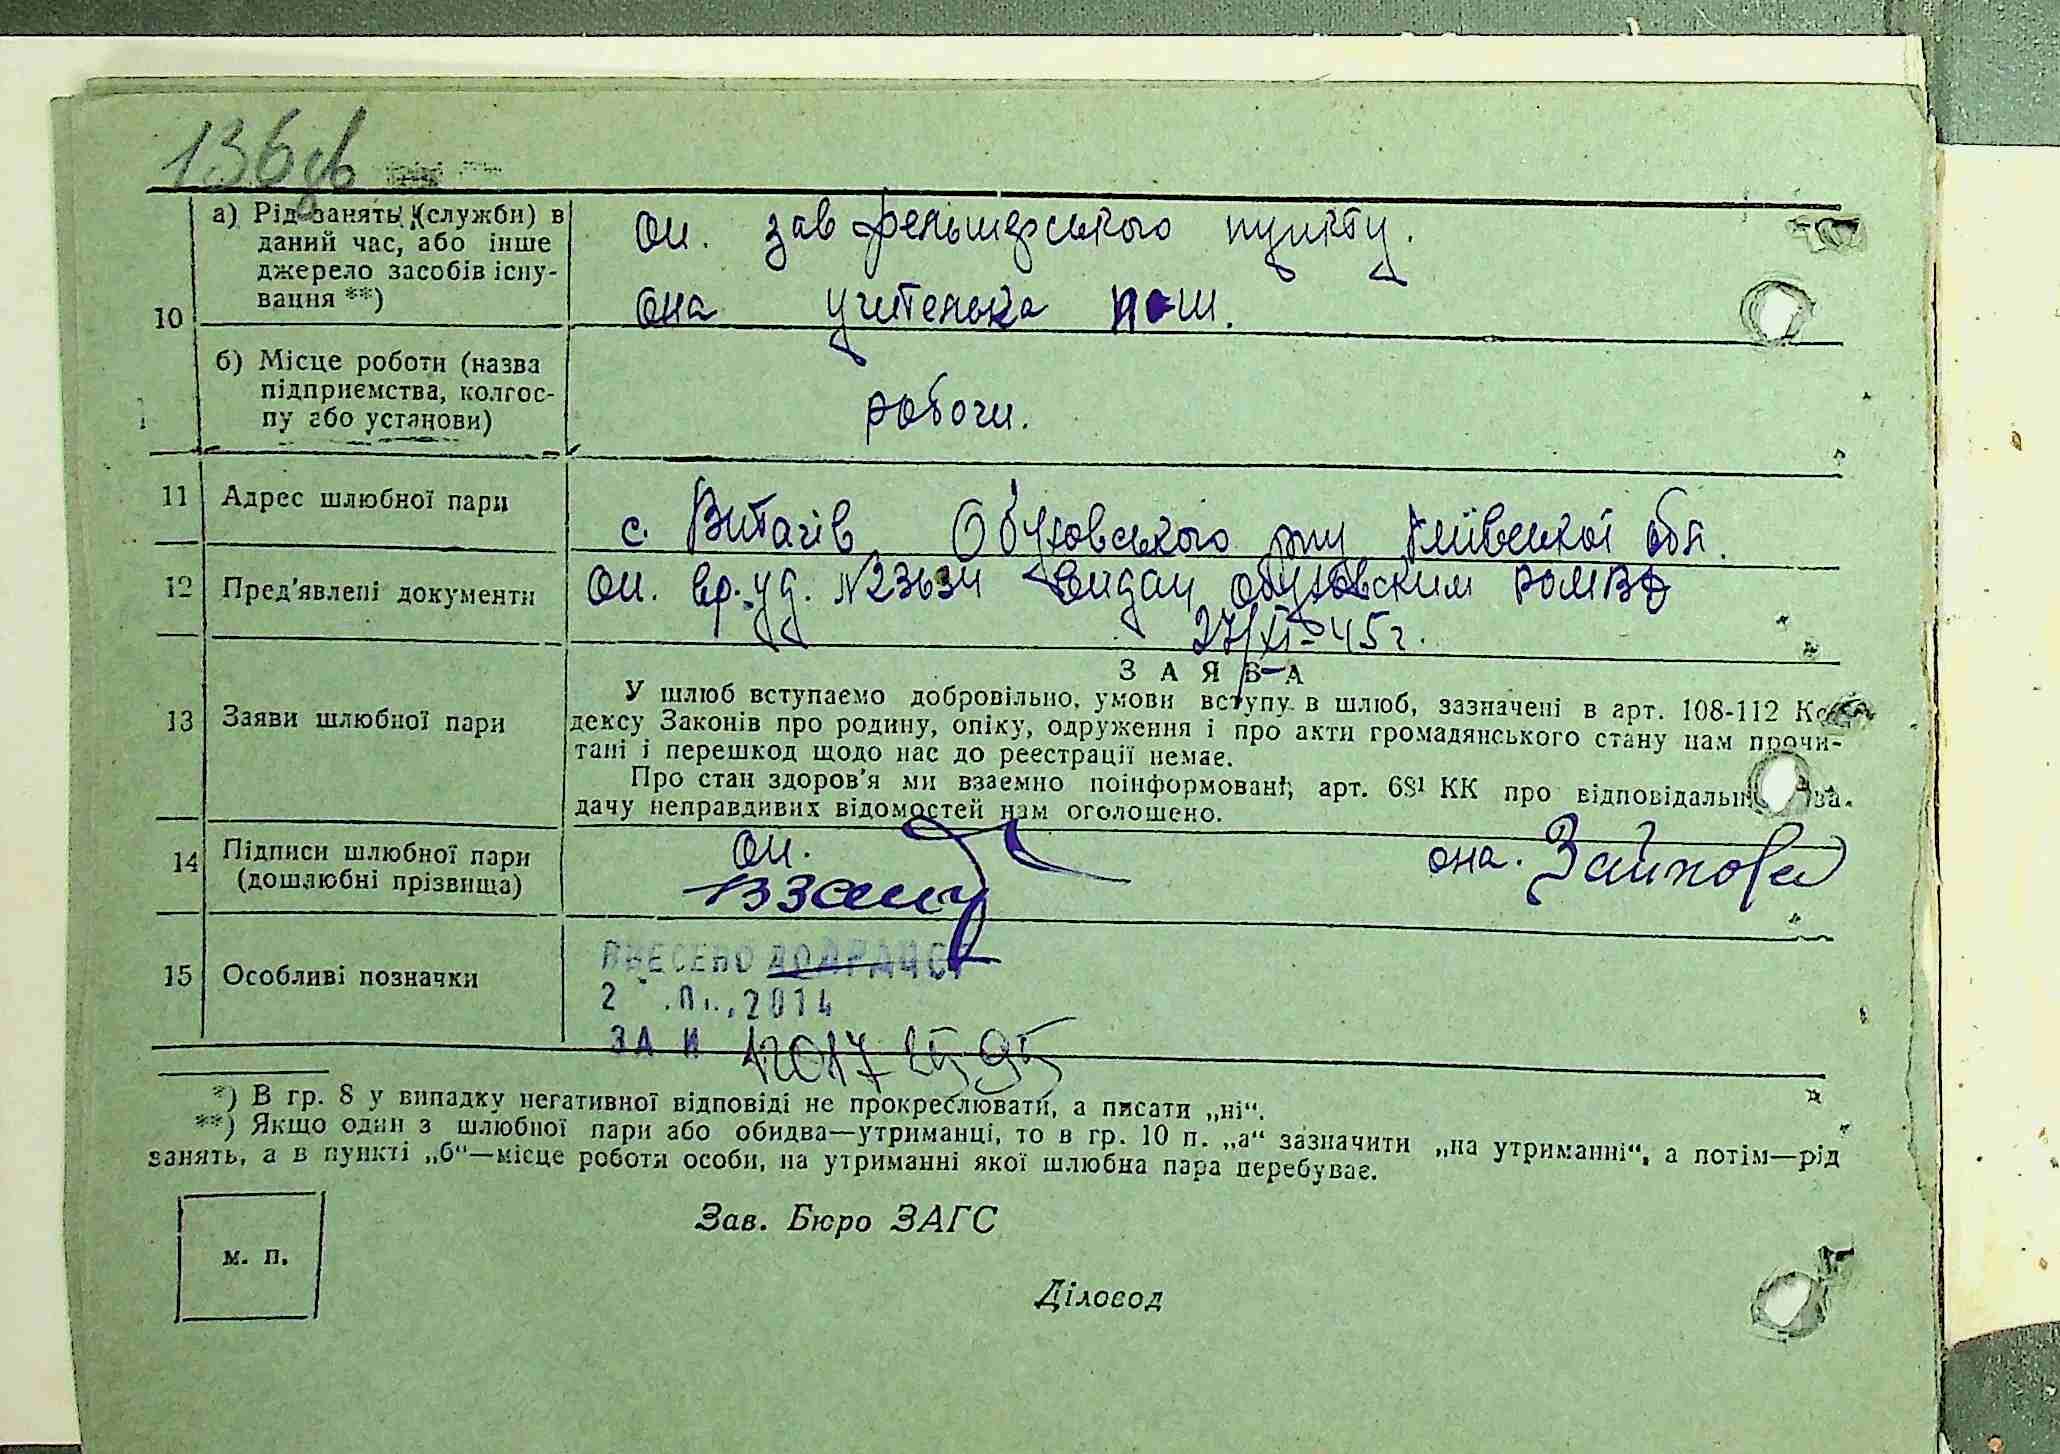 136 зв
а) Рід занять (служби) в даний час, або інше джерело засобів існування **)
он. зав фельшерського пункту.
она учителька п ш.
10
б) Місце роботи (назва підприємства, колгоспу або установи)
робочи.
11 Адрес шлюбної пари
с. Витачів Обуховського р-ну Київської обл.
12 Пред'явлені документи
он. вр. уд. №23634 видан обуховским РОМВД
27/XI-45 г.
ЗАЯВА
13 Заяви шлюбної пари
У шлюб вступаємо добровільно, умови вступу в шлюб, зазначені в арт. 108-112 Ко-
дексу Законів про родину, опіку, одруження і про акти громадянського стану нам прочи-
тані і перешкод щодо нас до реєстрації немає.
Про стан здоров'я ми взаємно поінформовані, арт. 68¹ КК про відповідальн за
дачу неправдивих відомостей нам оголошено.
14 Підписи шлюбної пари
(дошлюбні прізвища)
он.
она.
15 Особливі позначки
ВНЕСЕНО ДО ДРАЦСГ
2 2014
ЗА №
*) В гр. 8 у випадку негативної відповіді не прокреслювати, а писати „ні“.
**) Якщо один з шлюбної пари або обидва—утриманці, то в гр. 10 п. „а“ зазначити „на утриманні“, а потім—рід
занять, а в пункті „б“—місце роботи особи, на утриманні якої шлюбна пара перебуває.
Зав. Бюро ЗАГС
м. п.
Діловод